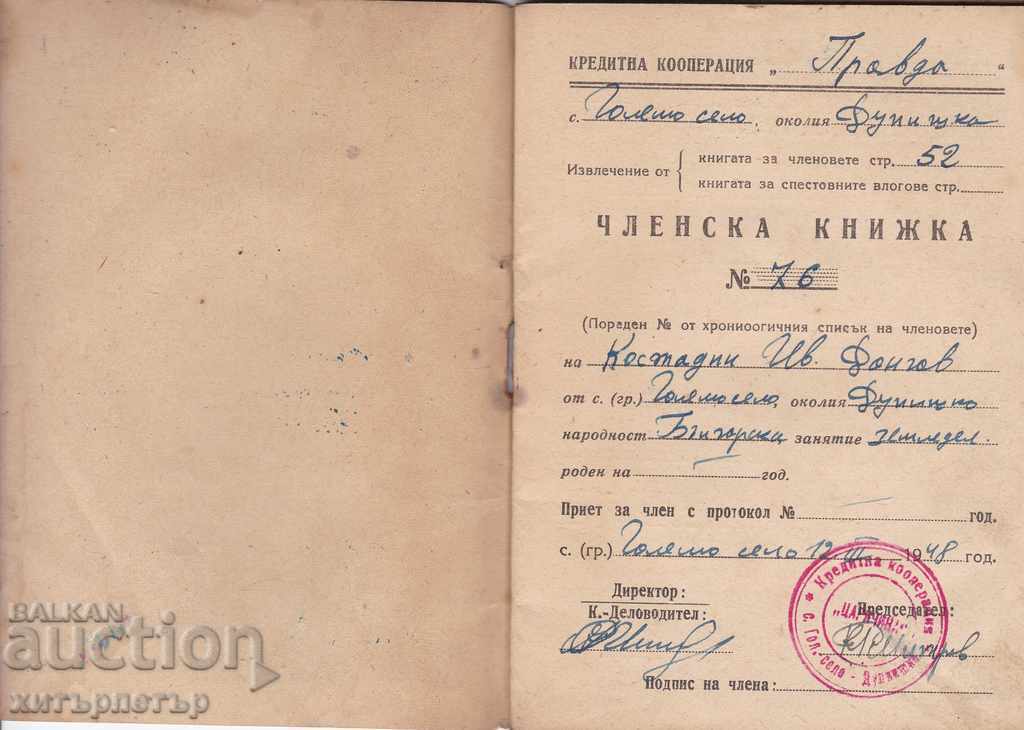 КРЕДИТНА КООПЕРАЦИЯ „Правда“
с. Голямо село, околия Дупнишка
Извлечение от { книгата за членовете стр. 52
книгата за спестовните влогове стр.
ЧЛЕНСКА КНИЖКА
№ 76
(Пореден № от хрониоогичния списък на членовете)
на Костадин Ив. Донгов
от с. (гр.) Голямо село, околия Дупнишко
народност Българска занятие земледел.
роден на год.
Приет за член с протокол № год.
с. (гр.) Голямо село 12.III 1948 год.
Директор:
К.-Деловодител:
Председател:
Подпис на члена:
Кредитна кооперация
с. Гол. село - Дупнишка
BALKAN
auction
хитърпетър